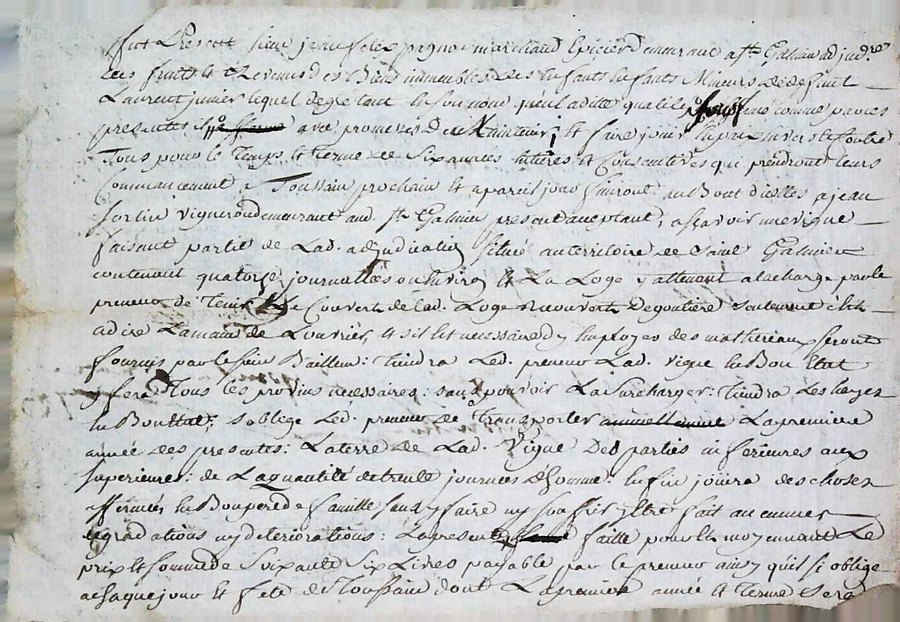 fut Present sieur jean felix pagnon marchand Epicier demeurant a st. Galmier adjud.re
Les fruits et Revenus des Biens immeubles des Enfants Mineurs de deffunt
Laurent junier lequel de gré tant en son nom qu'en ladite qualité afferme comme par ces
presentes il afferme avec promesses de maintenir et faire jouir en paix envers et Contre
Tous pour le Temps et terme de Six années entieres et Consecutives qui prendront leurs
Commancement a Toussain prochain et a pareil jour finiront au Bout d'icelles a jean
fortin vigneron demeurant aud. st. Galmier present acceptant, assavoir une vigne
faisant partie de Lad. adjudication Située au territoire de Saint Galmier
contenant quatorze journallées ou environ et La Loge y attenant a la charge par le
preneur de Tenir Le Couvert de lad. Loge Recouvert de goutiere seulement c'est
a dire La main de L'ouvrier, et s'il est necessaire d'y employer des matheriaux seront
fournis par le sieur Bailleur: tiendra Led. preneur Lad. vigne en Bon Etat
y fera Tous les provins necessaires: sans pouvoir La Surcharger: tiendra Les hayes
en Bon Etat; s'oblige Led. preneur de Transporter annuellement La premiere
année des presentes: La terre de Lad. Vigne Des parties inferieures aux
superieures: de La quantité de trente journées d'homme: enfin jouira des choses
affermées en Bon pere de famille sans y faire ny souffrir y Etre fait aucunes
degradations ny deteriorations: La presente ferme faitte pour et moyennant Le
prix et somme de Soixante Six Livres payable par le preneur ainsy qu'il s'y oblige
a chaque jour et fete de Toussain dont La premiere année et terme Sera